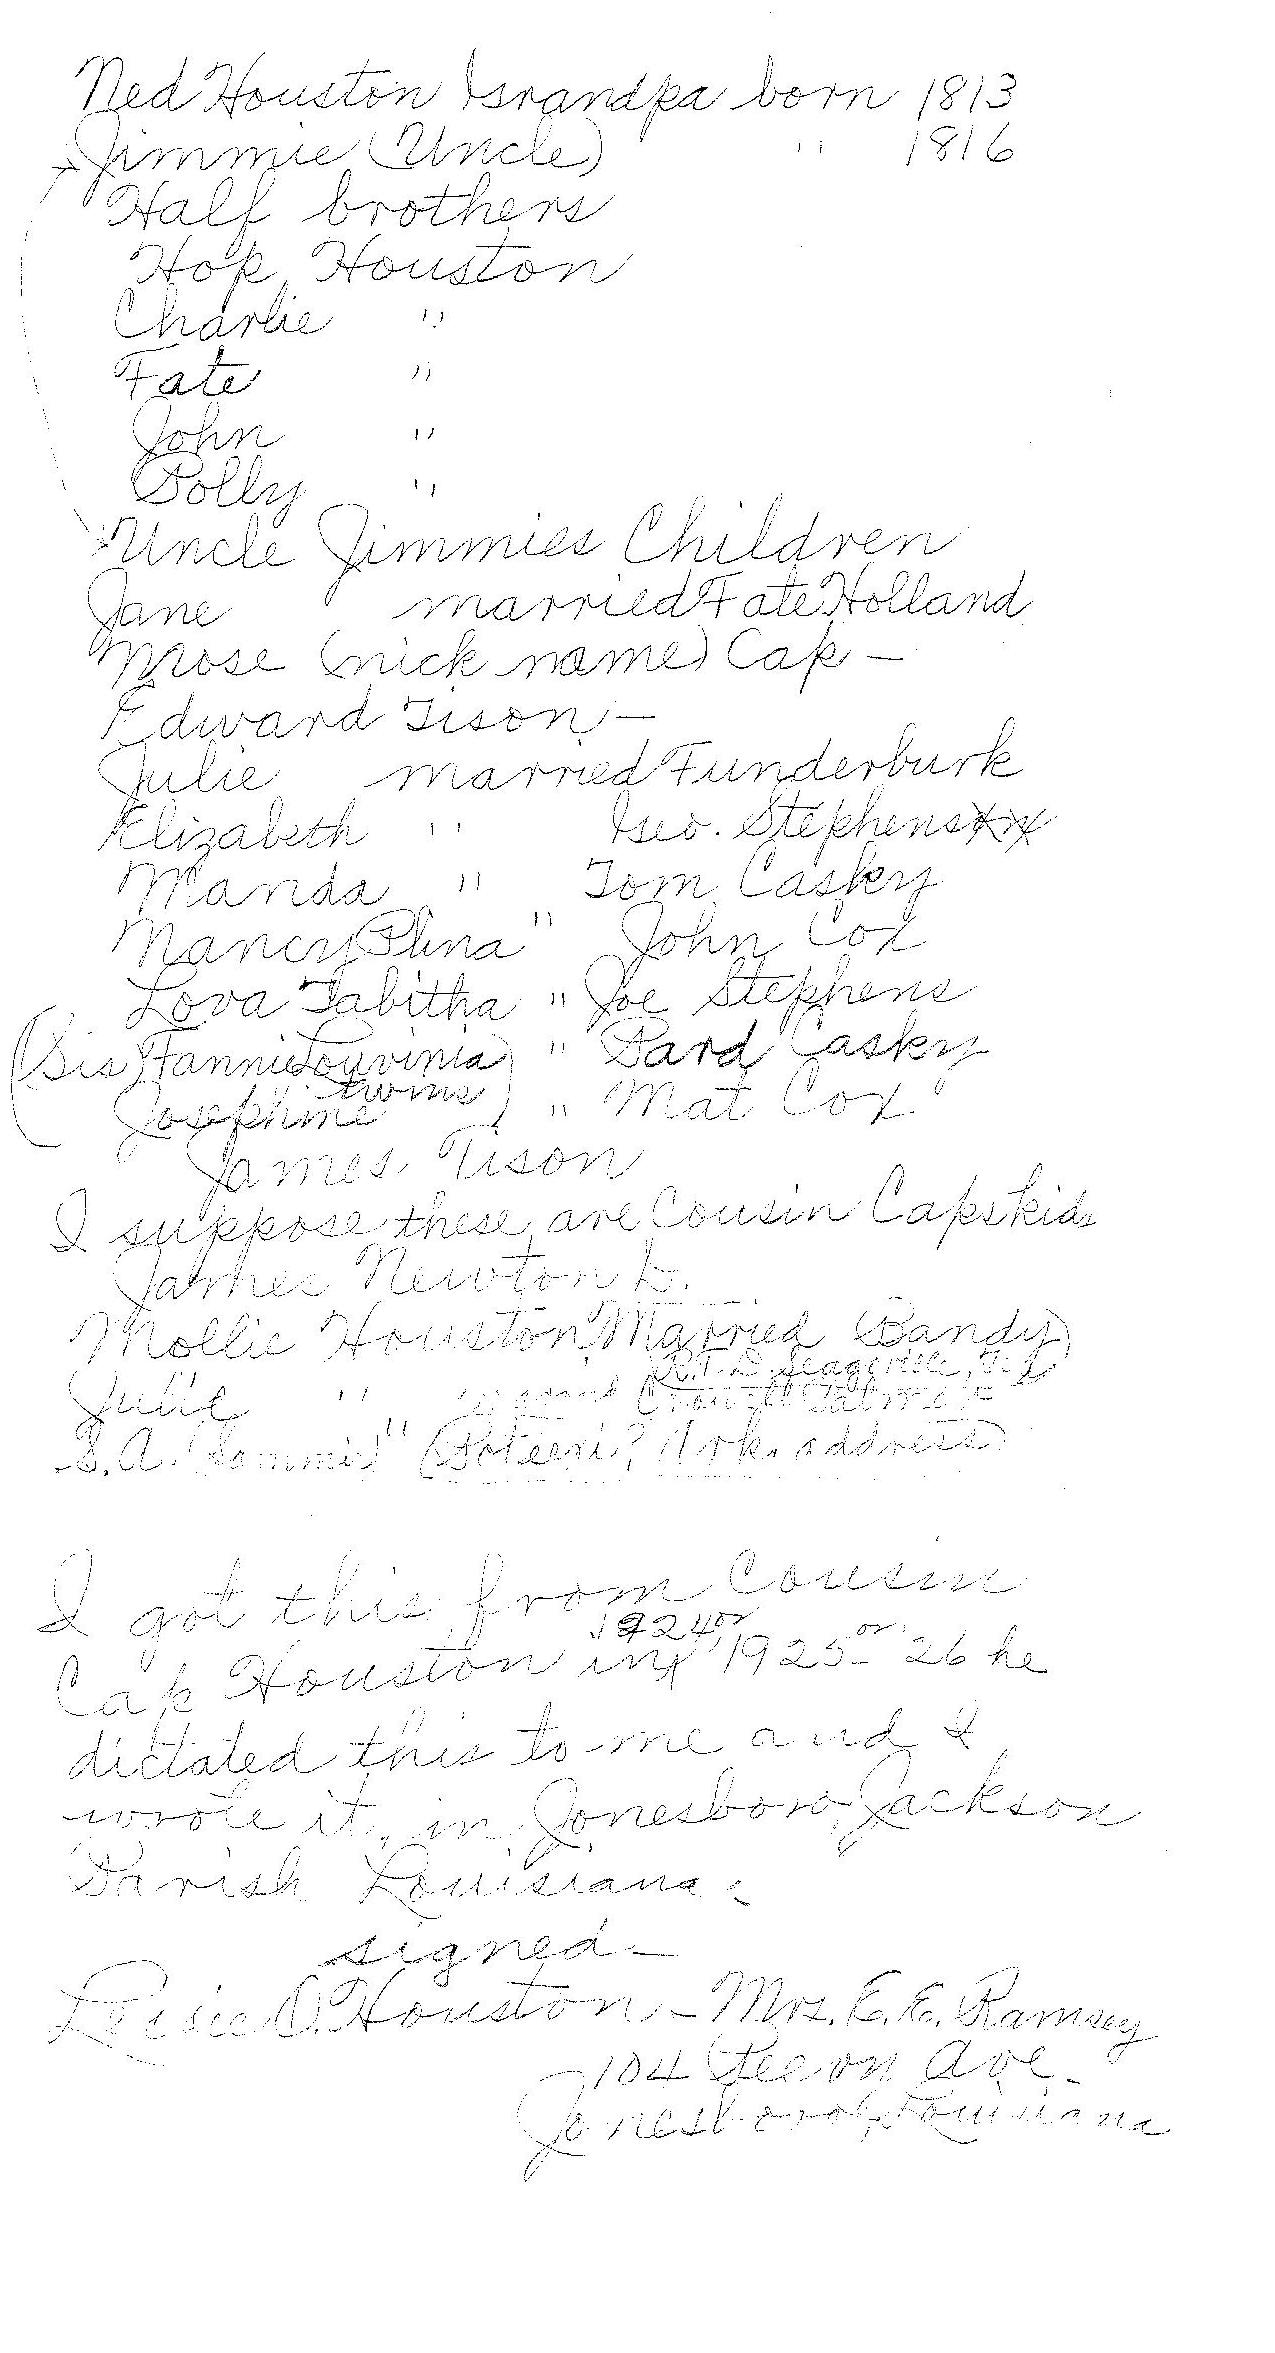 Ned Houston Grandpa born 1813
Jimmie (Uncle) " 1816
Half brothers
Hop Houston
Charlie "
Fate "
John "
Polly "
Uncle Jimmies Children
Jane married Fate Holland
Mose (nick name) Cap —
Edward Tison —
Julie married Funderburk
Elizabeth " Geo. Stephens
Manda " Tom Casky
Nancy Plina " John Cox
Lova Tabitha " Joe Stephens
(Sis) Fannie Louvinia " Pard Casky
twins
Josephine " Mat Cox
James Tison
I suppose these are Cousin Caps kids
James Newton D.
Mollie Houston Married (Bandy)
R.F.D. Seagoville, Tex
Julie " " Palmer
S.A. "Sommie" " (Poteen? Ark. address)
I got this from Cousin
1924 or or
Cap Houston in 1925 - 26 he
dictated this to me and I
wrote it, in Jonesboro, Jackson
Parish Louisiana -
signed -
O. Houston - Mrs. E. E. Ramsey
104 Ave.
Jonesboro, Louisiana